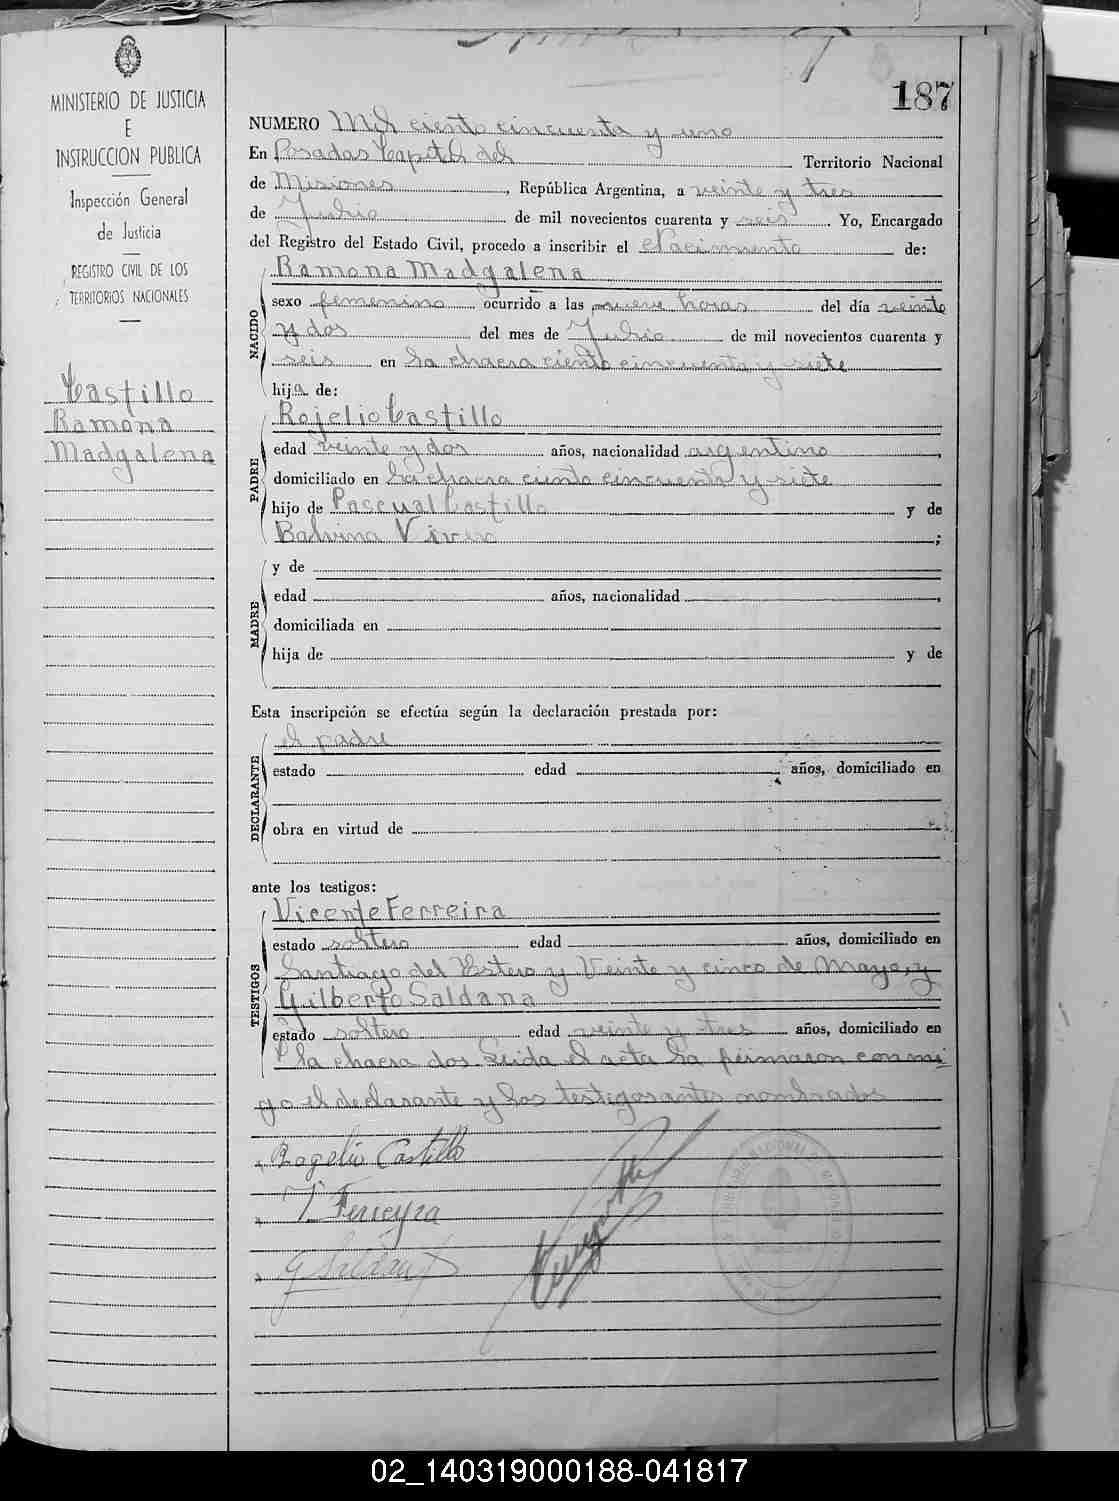 187
MINISTERIO DE JUSTICIA
E
INSTRUCCION PUBLICA
Inspección General
de Justicia
REGISTRO CIVIL DE LOS
TERRITORIOS NACIONALES
Castillo
Ramona
Madgalena
NUMERO Mil ciento cincuenta y uno
En Posadas Capital del Territorio Nacional
de Misiones, República Argentina, a veinte y tres
de Julio de mil novecientos cuarenta y seis. Yo, Encargado
del Registro del Estado Civil, procedo a inscribir el Nacimiento de:
NACIDO
Ramona Madgalena
sexo femenino ocurrido a las nueve horas del día veinte
y dos del mes de Julio de mil novecientos cuarenta y
seis en la chacra ciento cincuenta y siete
hija de:
PADRE
Rojelio Castillo
edad veinte y dos años, nacionalidad argentino,
domiciliado en la chacra ciento cincuenta y siete
hijo de Pascual Castillo y de
Balvina Vivero;
MADRE
y de
edad años, nacionalidad,
domiciliada en
hija de y de
Esta inscripción se efectúa según la declaración prestada por:
DECLARANTE
el padre
estado edad años, domiciliado en
obra en virtud de
ante los testigos:
TESTIGOS
Vicente Ferreira
estado soltero edad años, domiciliado en
Santiago del Estero y Veinte y cinco de Mayo, y
Gilberto Saldana
estado soltero edad veinte y tres años, domiciliado en
la chacra dos Leida el acta la firmaron conmi
go el declarante y los testigos antes nombrados
Rogelio Castillo
V Ferreyra
G Saldana
02_140319000188-041817